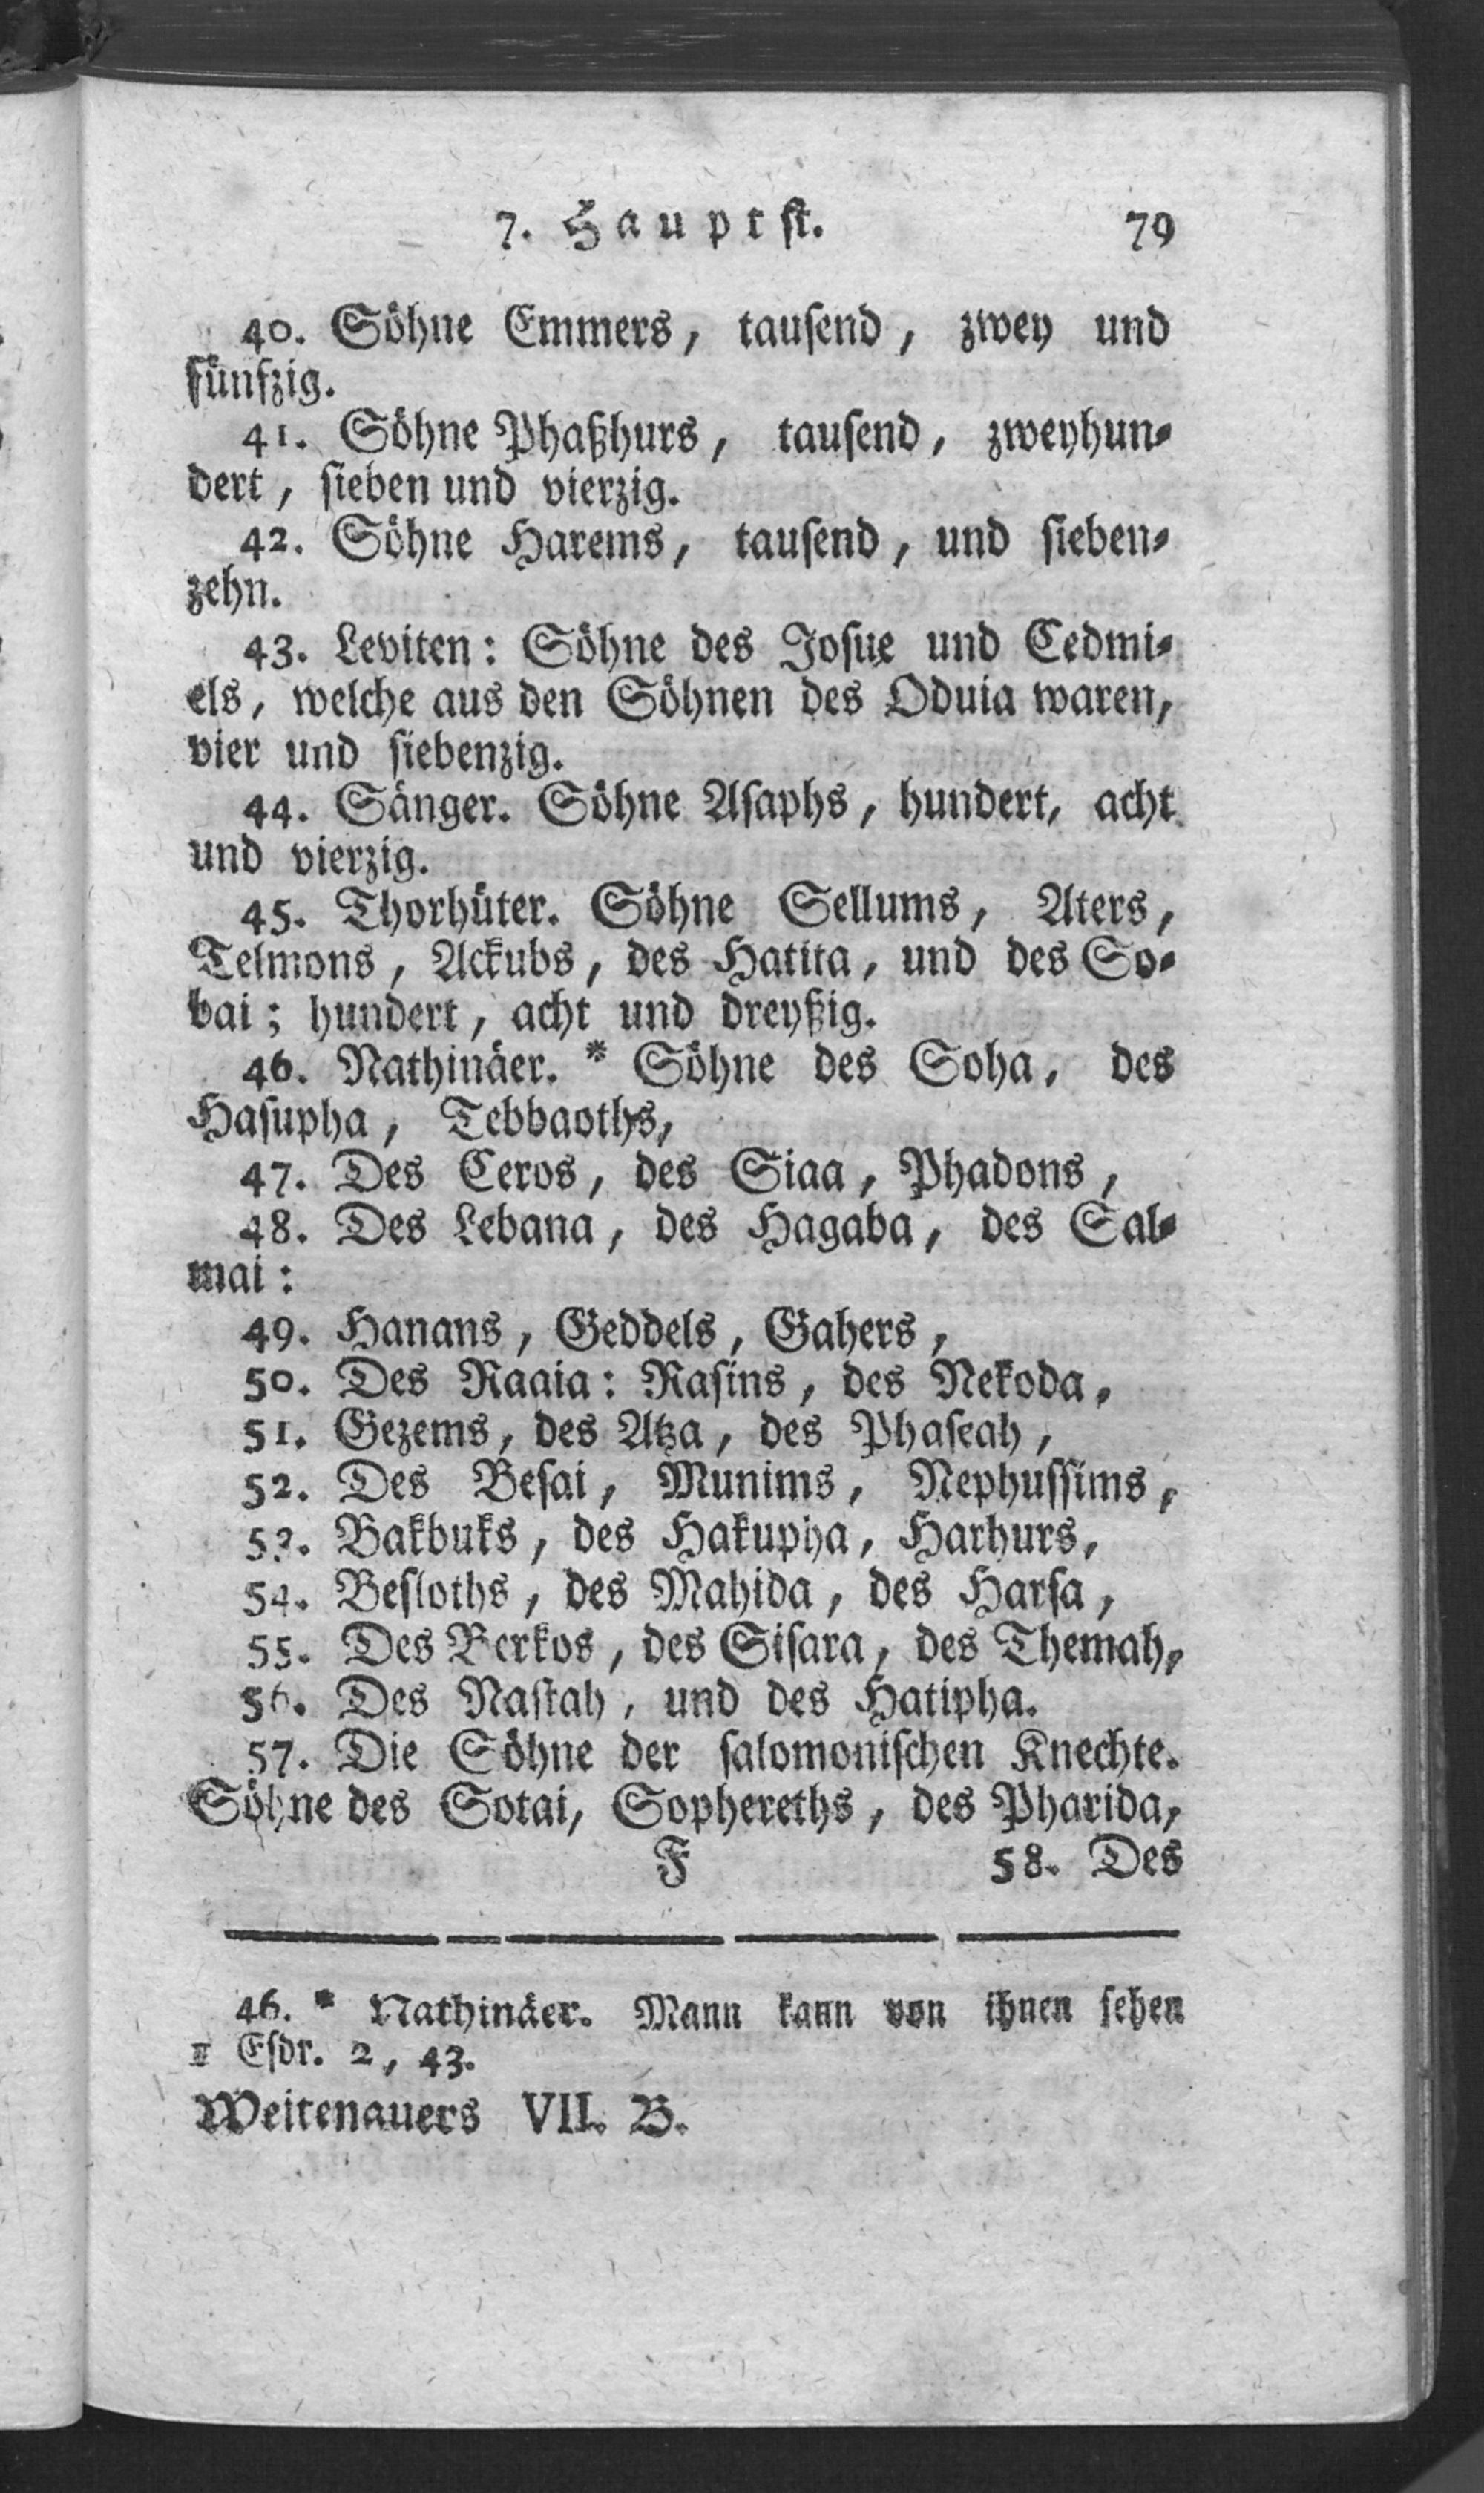 7. Hauptst. 79
40. Söhne Emmers, tausend, zwey und
fünfzig.
41. Söhne Phaßhurs, tausend, zweyhun-
dert, sieben und vierzig.
42. Söhne Harems, tausend, und sieben-
zehn.
43. Leviten: Söhne des Josue und Cedmi-
els, welche aus den Söhnen des Oduia waren,
vier und siebenzig.
44. Sänger. Söhne Asaphs, hundert, acht
und vierzig.
45. Thorhüter. Söhne Sellums, Aters,
Telmons, Ackubs, des Hatita, und des So-
bai; hundert, acht und dreyßig.
46. Nathinäer. * Söhne des Soha, des
Hasupha, Tebbaoths,
47. Des Ceros, des Siaa, Phadons,
48. Des Lebana, des Hagaba, des Sal-
mai:
49. Hanans, Geddels, Gahers,
50. Des Raaia: Rasins, des Nekoda,
51. Gezems, des Atza, des Phaseah,
52. Des Besai, Munims, Nephussims,
53. Bakbuks, des Hakupha, Harhurs,
54. Besloths, des Mahida, des Harsa,
55. Des Berkos, des Sisara, des Themah,
56. Des Nasiah, und des Hatipha.
57. Die Söhne der salomonischen Knechte.
Söhne des Sotai, Sophereths, des Pharida,
F 58. Des
46. * Nathinäer. Mann kann von ihnen sehen
II Esdr. 2, 43.
Weitenauers VII. B.